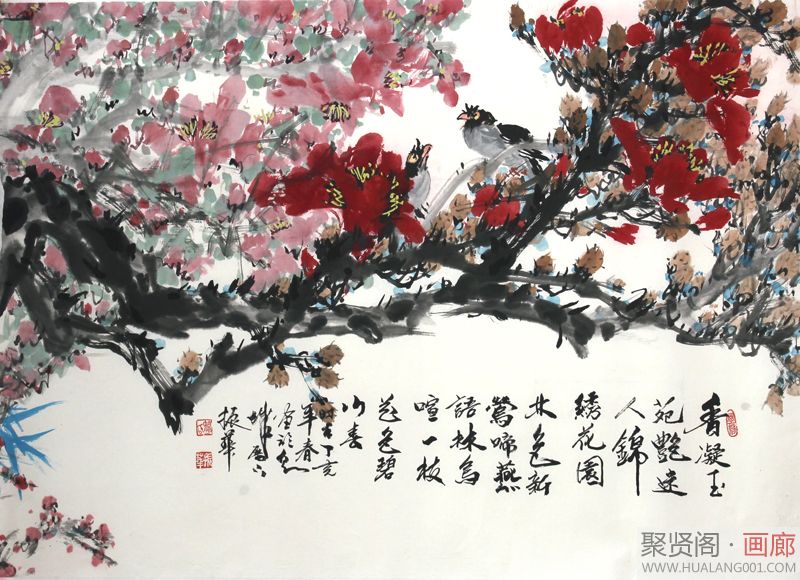 香凝玉
苑艷迷
人錦
綉花園
林色新
鶯啼燕
語林鳥
喧一枝
花色碧
山春
時在丁亥
年春
振華
聚贤阁·画廊
WWW.HUALANG001.COM